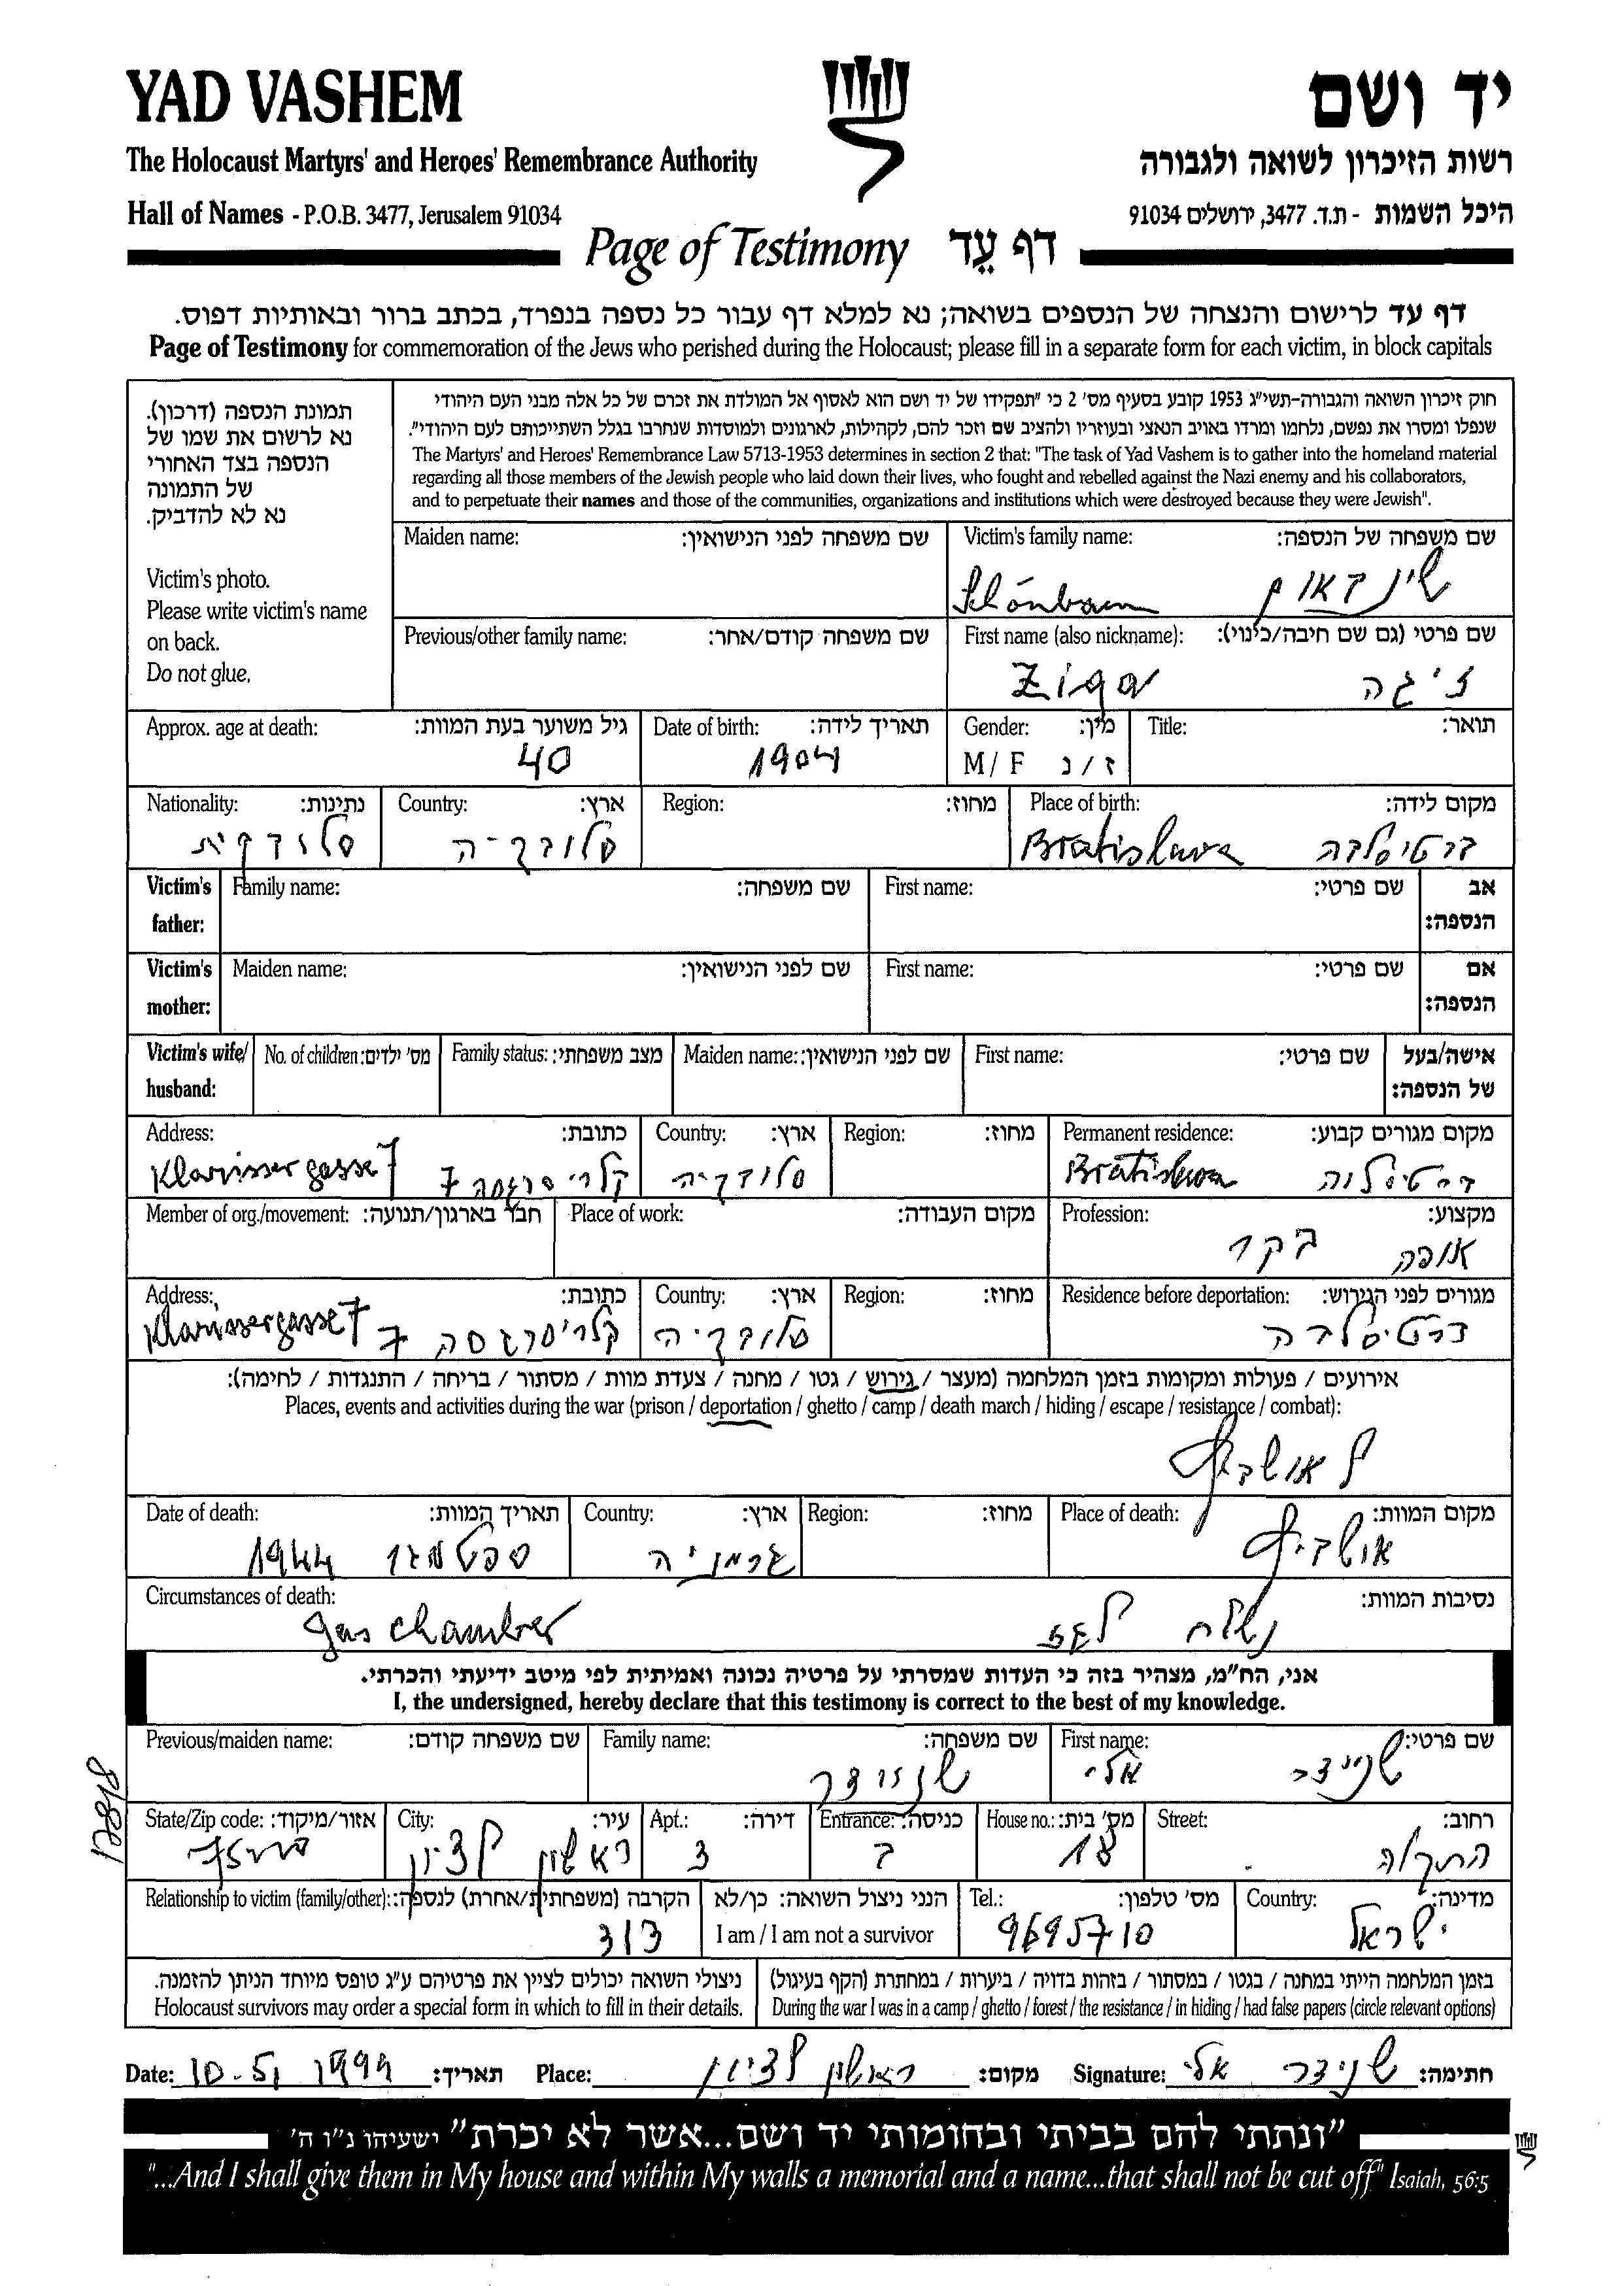 YAD VASHEM
יד ושם
The Holocaust Martyrs' and Heroes' Remembrance Authority
רשות הזיכרון לשואה ולגבורה
Hall of Names - P.O.B. 3477, Jerusalem 91034
היכל השמות - ת.ד. 3477, ירושלים 91034
Page of Testimony דף עֵד
דף עד לרישום והנצחה של הנספים בשואה; נא למלא דף עבור כל נספה בנפרד, בכתב ברור ובאותיות דפוס.
Page of Testimony for commemoration of the Jews who perished during the Holocaust; please fill in a separate form for each victim, in block capitals
תמונת הנספה (דרכון).
נא לרשום את שמו של
הנספה בצד האחורי
של התמונה
נא לא להדביק.
Victim's photo.
Please write victim's name
on back.
Do not glue.
חוק זיכרון השואה והגבורה-תשי"ג 1953 קובע בסעיף מס' 2 כי "תפקידו של יד ושם הוא לאסוף אל המולדת את זכרם של כל אלה מבני העם היהודי
שנפלו ומסרו את נפשם, נלחמו ומרדו באויב הנאצי ובעוזריו ולהציב שם וזכר להם, לקהילות, לארגונים ולמוסדות שנחרבו בגלל השתייכותם לעם היהודי".
The Martyrs' and Heroes' Remembrance Law 5713-1953 determines in section 2 that: "The task of Yad Vashem is to gather into the homeland material
regarding all those members of the Jewish people who laid down their lives, who fought and rebelled against the Nazi enemy and his collaborators,
and to perpetuate their names and those of the communities, organizations and institutions which were destroyed because they were Jewish".
Maiden name: שם משפחה לפני הנישואין:
Victim's family name: שם משפחה של הנספה:
Schönbaum שינבאום
Previous/other family name: שם משפחה קודם/אחר:
First name (also nickname): שם פרטי (גם שם חיבה/כינוי):
Ziga ז'יגה
Approx. age at death: גיל משוער בעת המוות:
40
Date of birth: תאריך לידה:
1904
Gender: מין:
M / F ז / נ
Title: תואר:
Nationality: נתינות:
סלובקית
Country: ארץ:
סלובקיה
Region: מחוז:
Place of birth: מקום לידה:
Bratislava ברטיסלבה
Victim's father: Family name: שם משפחה: First name: שם פרטי: אב הנספה:
Victim's mother: Maiden name: שם לפני הנישואין: First name: שם פרטי: אם הנספה:
Victim's wife/ husband: No. of children: מס' ילדים: Family status: מצב משפחתי: Maiden name: שם לפני הנישואין: First name: שם פרטי: אישה/בעל של הנספה:
Address: כתובת:
Klarissergasse 7
Country: ארץ:
סלובקיה
Region: מחוז:
Permanent residence: מקום מגורים קבוע:
Bratislava
Member of org./movement: חבר בארגון/תנועה:
Place of work: מקום העבודה:
Profession: מקצוע:
אופה בקר
Address: כתובת:
Klarissergasse 7 קלריסרגסה 7
Country: ארץ:
סלובקיה
Region: מחוז:
Residence before deportation: מגורים לפני הגירוש:
ברטיסלבה
אירועים / פעולות ומקומות בזמן המלחמה (מעצר / גירוש / גטו / מחנה / צעדת מוות / מסתור / בריחה / התנגדות / לחימה):
Places, events and activities during the war (prison / deportation / ghetto / camp / death march / hiding / escape / resistance / combat):
לאושביץ
Date of death: תאריך המוות:
ספטמבר 1944
Country: ארץ:
גרמניה
Region: מחוז:
Place of death: מקום המוות:
אושביץ
Circumstances of death: נסיבות המוות:
gas chamber נשלח לגז
אני, הח"מ, מצהיר בזה כי העדות שמסרתי על פרטיה נכונה ואמיתית לפי מיטב ידיעתי והכרתי.
I, the undersigned, hereby declare that this testimony is correct to the best of my knowledge.
Previous/maiden name: שם משפחה קודם:
Family name: שם משפחה:
שניידר
First name: שם פרטי:
שניידר אלי
State/Zip code: אזור/מיקוד:
City: עיר:
ראשון לציון
Apt.: דירה:
3
Entrance: כניסה:
ב
House no.: מס' בית:
18
Street: רחוב:
Relationship to victim (family/other): הקרבה (משפחתית/אחרת) לנספה:
דוד
הנני ניצול השואה: כן/לא
I am / I am not a survivor
Tel.: מס' טלפון:
9695710
Country: מדינה:
ישראל
ניצולי השואה יכולים לציין את פרטיהם ע"ג טופס מיוחד הניתן להזמנה.
Holocaust survivors may order a special form in which to fill in their details.
בזמן המלחמה הייתי במחנה / בגטו / במסתור / בזהות בדויה / ביערות / במחתרת (הקף בעיגול)
During the war I was in a camp / ghetto / forest / the resistance / in hiding / had false papers (circle relevant options)
Date: 10.5.1999 תאריך: Place: ראשון לציון מקום: Signature: שניידר אלי חתימה:
"ונתתי להם בביתי ובחומותי יד ושם...אשר לא יכרת" ישעיהו נ"ו ה'
"...And I shall give them in My house and within My walls a memorial and a name...that shall not be cut off" Isaiah, 56:5